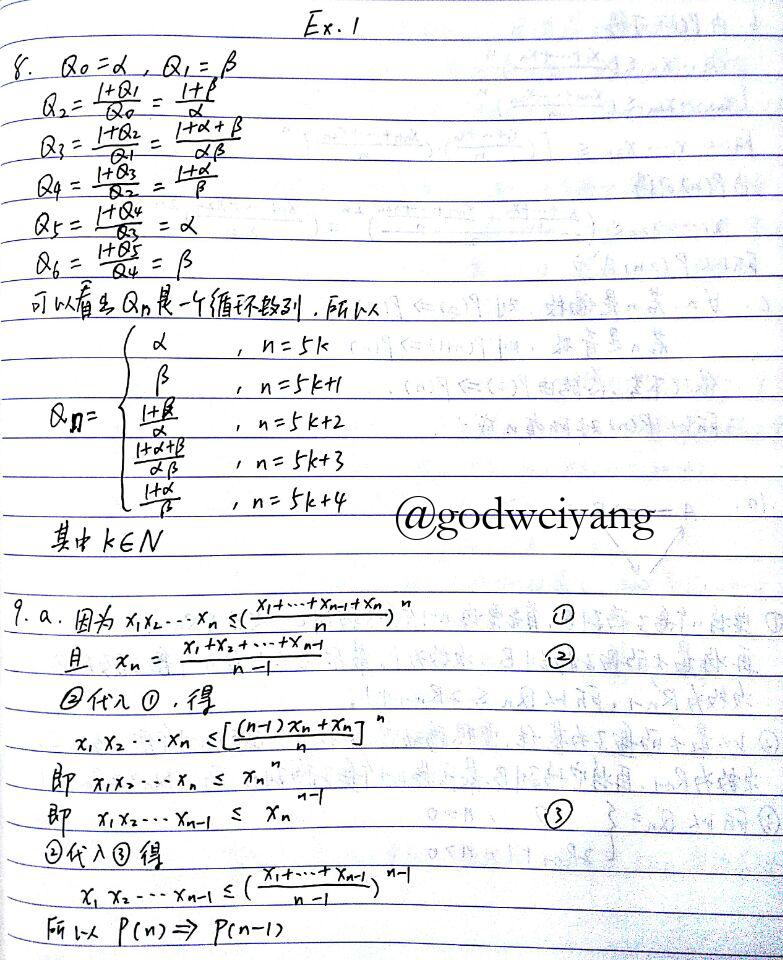 Ex.1
8. Q0=α , Q1=β
Q2=\frac{1+Q1}{Q0}=\frac{1+β}{α}
Q3=\frac{1+Q2}{Q1}=\frac{1+α+β}{αβ}
Q4=\frac{1+Q3}{Q2}=\frac{1+α}{β}
Q5=\frac{1+Q4}{Q3}=α
Q6=\frac{1+Q5}{Q4}=β
可以看出Qn是一个循环数列,所以
Qn={
α , n=5k
β , n=5k+1
\frac{1+β}{α} , n=5k+2
\frac{1+α+β}{αβ} , n=5k+3
\frac{1+α}{β} , n=5k+4
@godweiyang
其中 k∈N
9. a. 因为 x1x2⋯xn ≤(\frac{x1+⋯+xn-1+xn}{n})^n ①
且 xn=\frac{x1+x2+⋯+xn-1}{n-1} ②
②代入①,得
x1x2⋯xn ≤[\frac{(n-1)xn+xn}{n}]^n
即 x1x2⋯xn ≤ xn^n
即 x1x2⋯xn-1 ≤ xn^{n-1} ③
②代入③得
x1x2⋯xn-1 ≤(\frac{x1+⋯+xn-1}{n-1})^{n-1}
所以 P(n)⇒P(n-1)